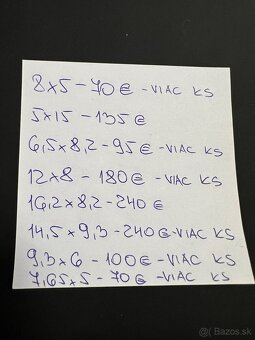 8x5 - 70€ - VIAC KS
5x15 - 135€
6,5x8,2 - 95€ - VIAC KS
12x8 - 180€ - VIAC KS
16,2x8,2 - 240€
14,5x9,3 - 240€ - VIAC KS
9,3x6 - 100€ - VIAC KS
7,65x5 - 70€ - VIAC KS
Bazos.sk